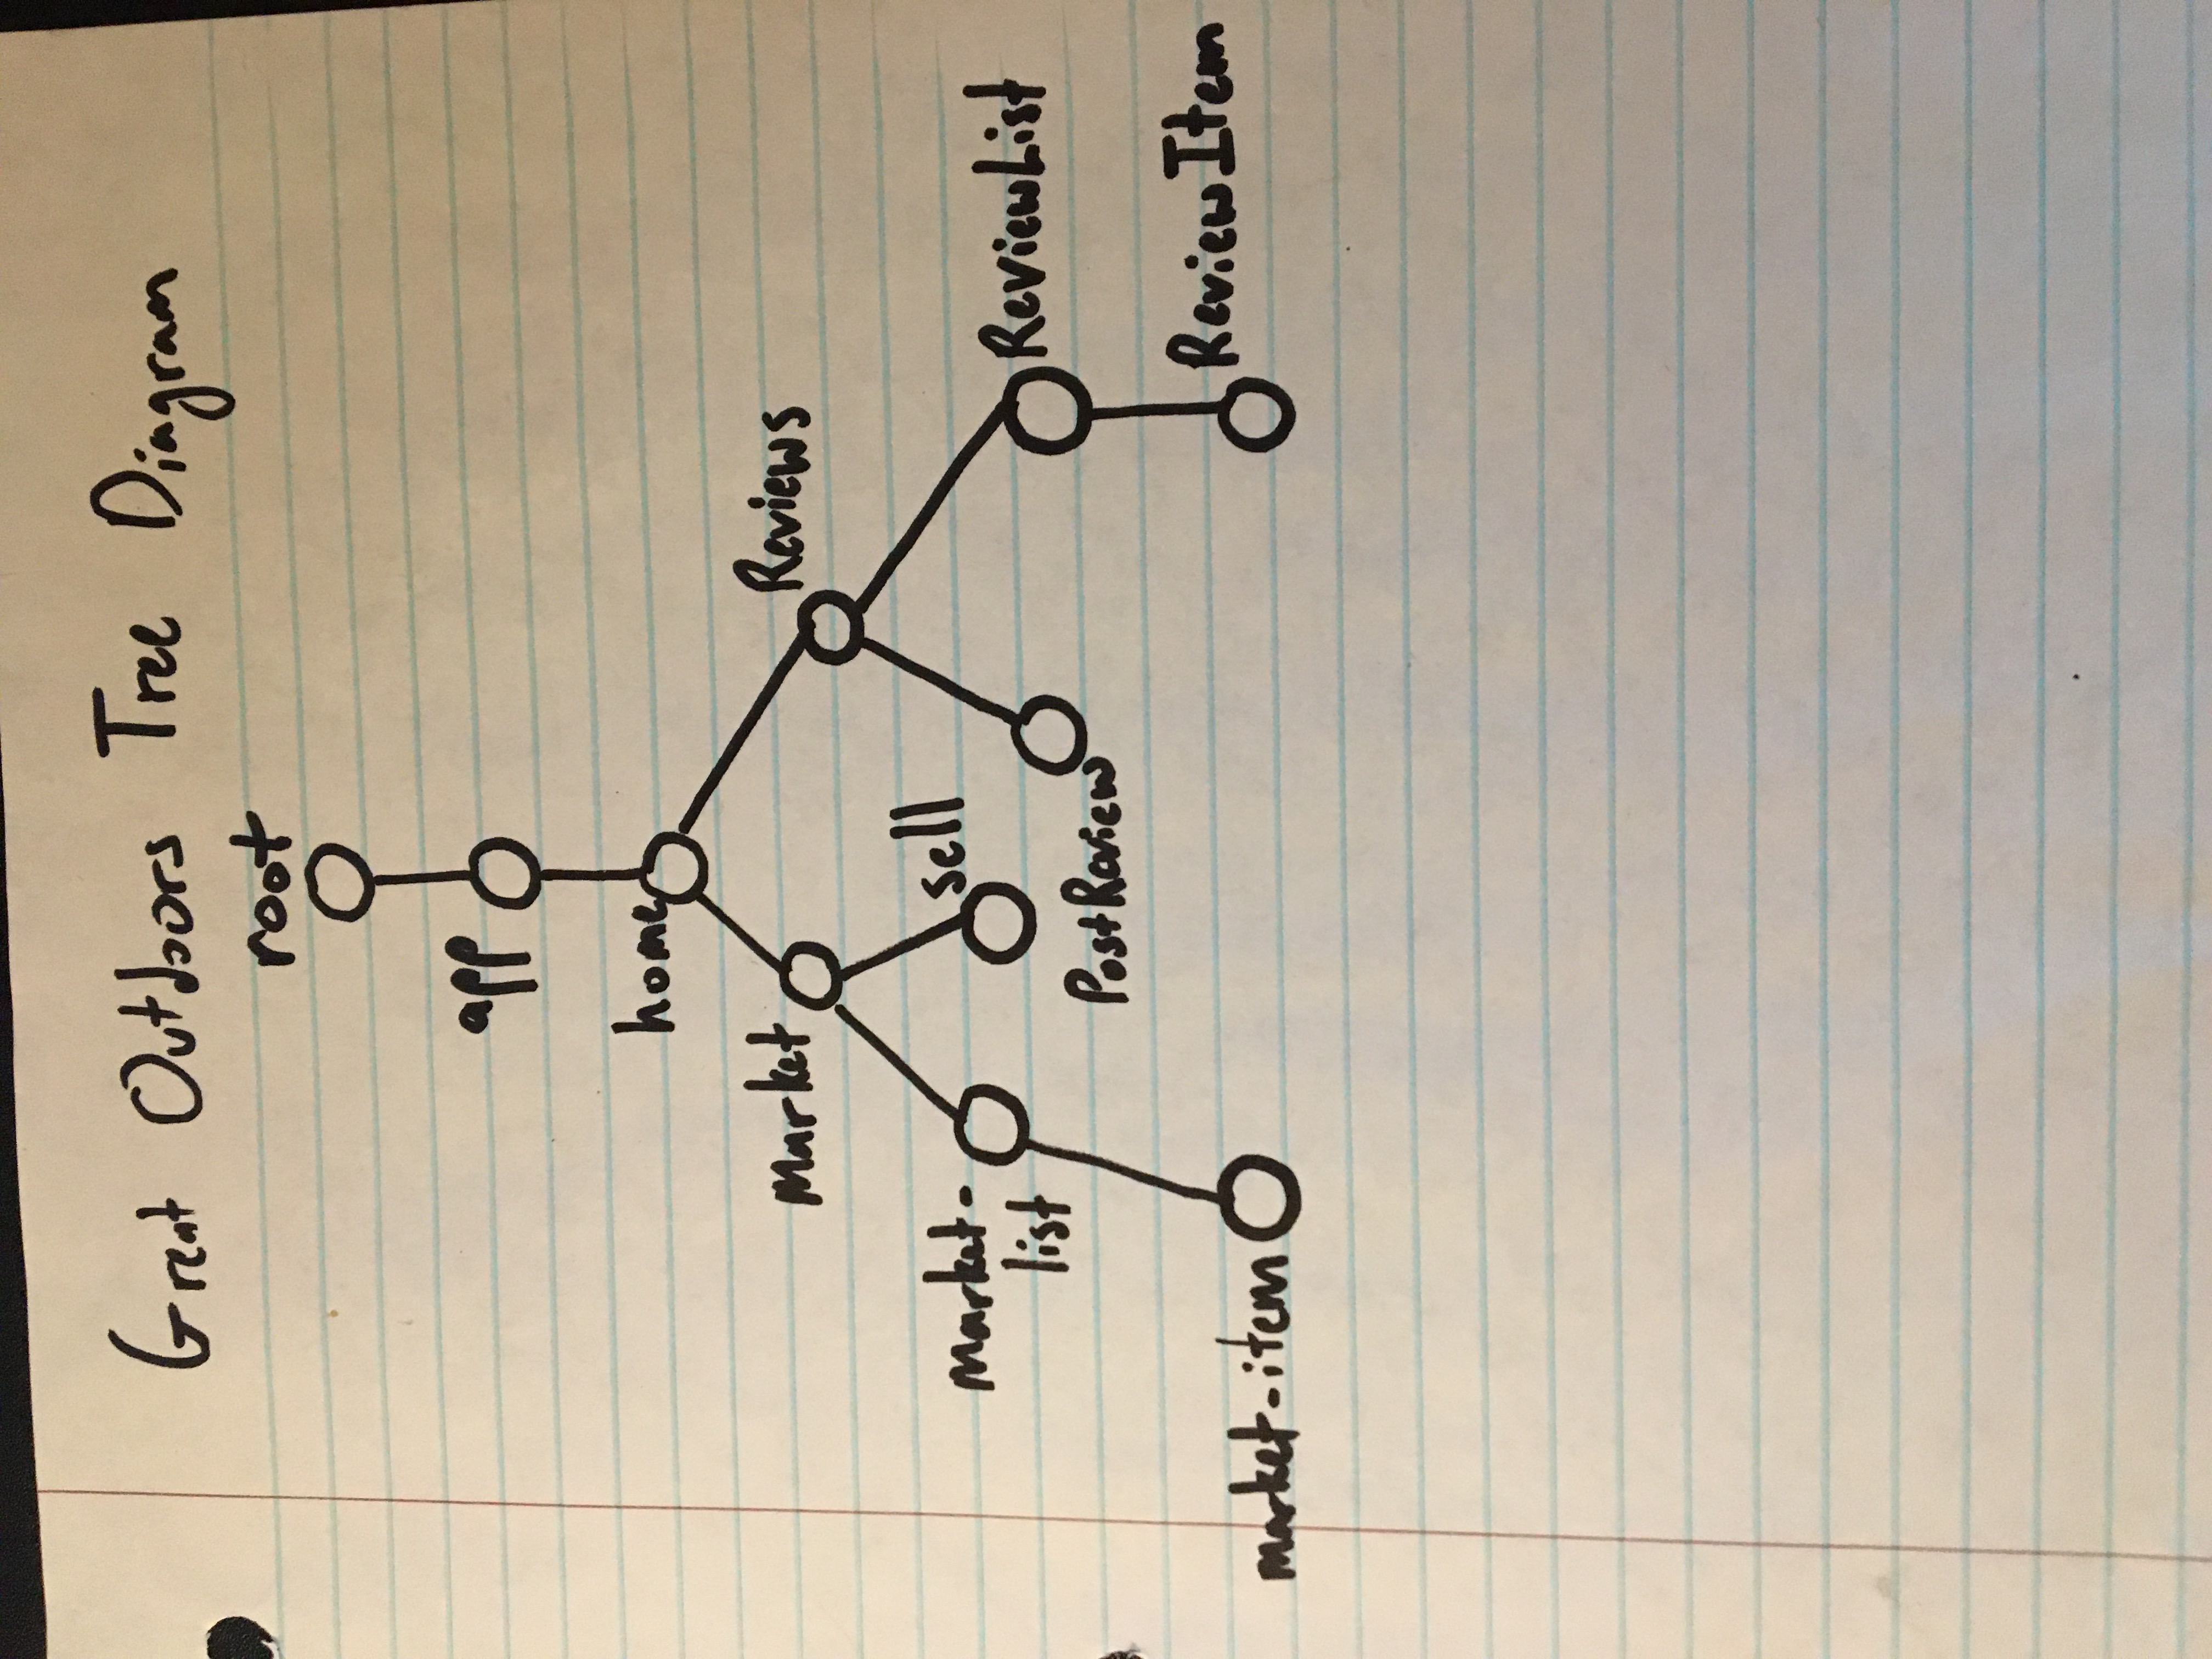 Great Outdoors Tree Diagram
root
app
home
Market
Reviews
Market-
list
sell
PostReview
ReviewList
market-item
ReviewItem